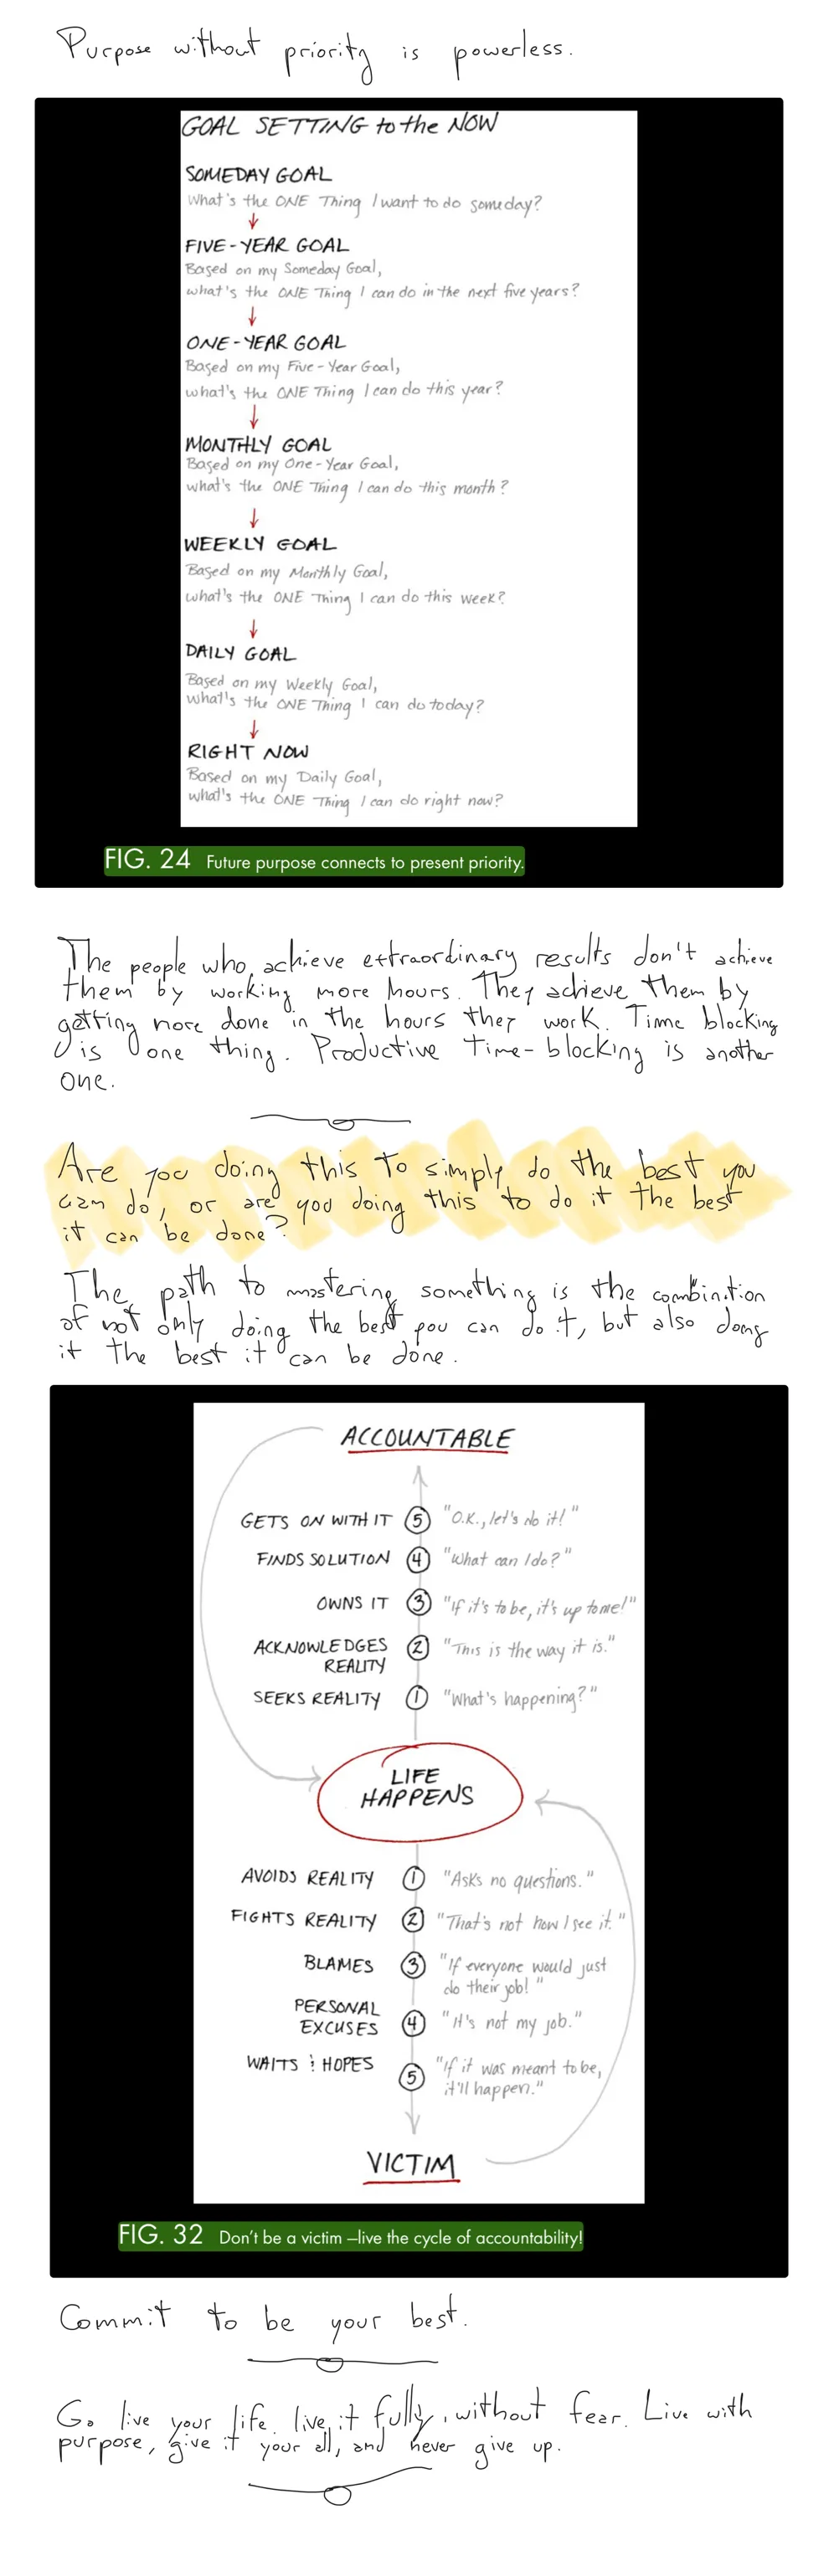 Purpose without priority is powerless.
GOAL SETTING to the NOW
SOMEDAY GOAL
What's the ONE Thing I want to do someday?
FIVE-YEAR GOAL
Based on my Someday Goal,
what's the ONE Thing I can do in the next five years?
ONE-YEAR GOAL
Based on my Five-Year Goal,
what's the ONE Thing I can do this year?
MONTHLY GOAL
Based on my One-Year Goal,
what's the ONE Thing I can do this month?
WEEKLY GOAL
Based on my Monthly Goal,
what's the ONE Thing I can do this week?
DAILY GOAL
Based on my Weekly Goal,
what's the ONE Thing I can do today?
RIGHT NOW
Based on my Daily Goal,
what's the ONE Thing I can do right now?
FIG. 24 Future purpose connects to present priority.
The people who achieve extraordinary results don't achieve
them by working more hours. They achieve them by
getting more done in the hours they work. Time blocking
is one thing. Productive Time-blocking is another
one.
Are you doing this to simply do the best you
can do, or are you doing this to do it the best
it can be done?
The path to mastering something is the combination
of not only doing the best you can do it, but also doing
it the best it can be done.
ACCOUNTABLE
GETS ON WITH IT 5 "O.K., let's do it!"
FINDS SOLUTION 4 "What can I do?"
OWNS IT 3 "If it's to be, it's up to me!"
ACKNOWLEDGES 2 "This is the way it is."
REALITY
SEEKS REALITY 1 "What's happening?"
LIFE
HAPPENS
AVOIDS REALITY 1 "Asks no questions."
FIGHTS REALITY 2 "That's not how I see it."
BLAMES 3 "If everyone would just
do their job!"
PERSONAL
EXCUSES 4 "It's not my job."
WAITS & HOPES 5 "If it was meant to be,
it'll happen."
VICTIM
FIG. 32 Don't be a victim –live the cycle of accountability!
Commit to be your best.
Go live your life. live it fully, without fear. Live with
purpose, give it your all, and never give up.